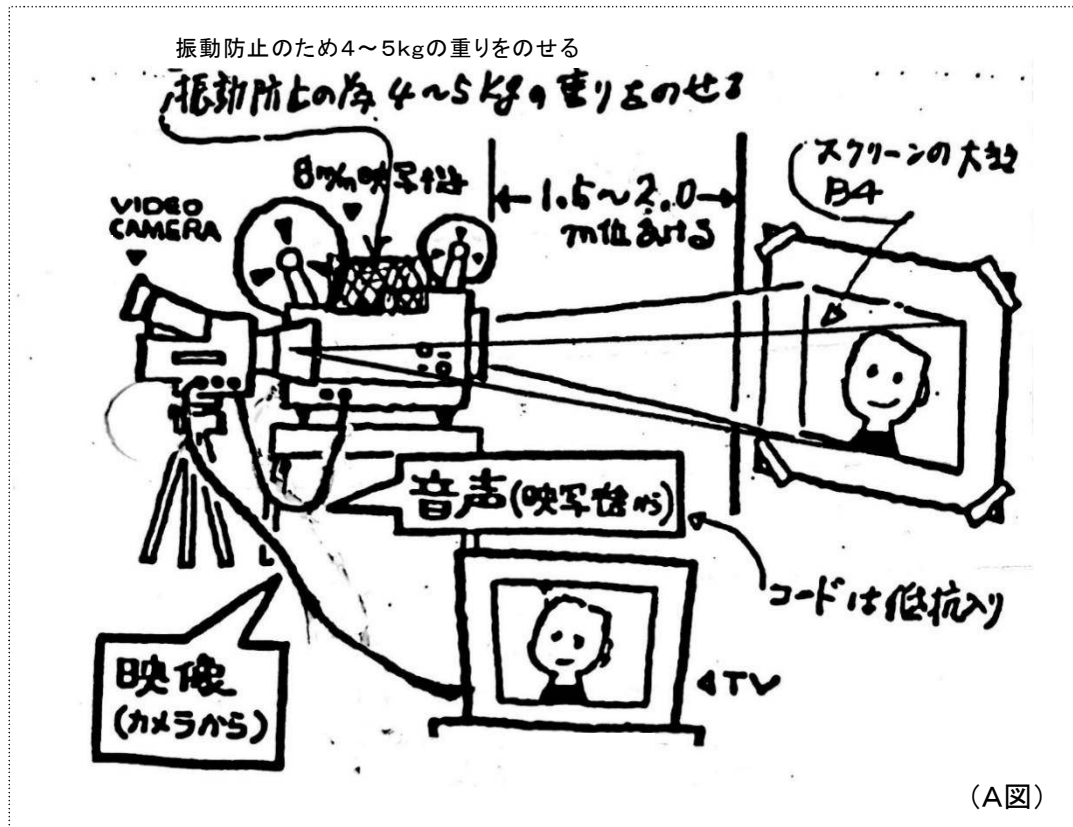 振動防止のため4～5kgの重りをのせる
振動防止の為4～5kgの重りをのせる
8m/m映写機
VIDEO
CAMERA
1.5～2.0
m位あける
スクリーンの大きさ
B4
音声(映写機から)
コードは抵抗入り
映像
(カメラから)
TV
(A図)